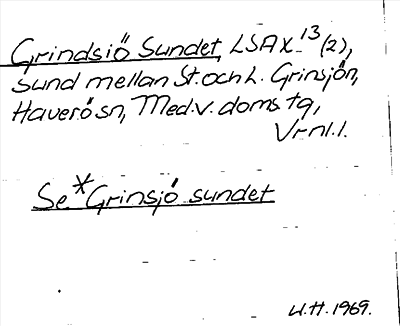 Grindsiö Sundet, LSA X 13 (2),
sund mellan St. och L. Grinsjön,
Haverö sn, Med.v. doms tg,
Vrnl.l.
Se *Grinsjö sundet
W.H. 1969.